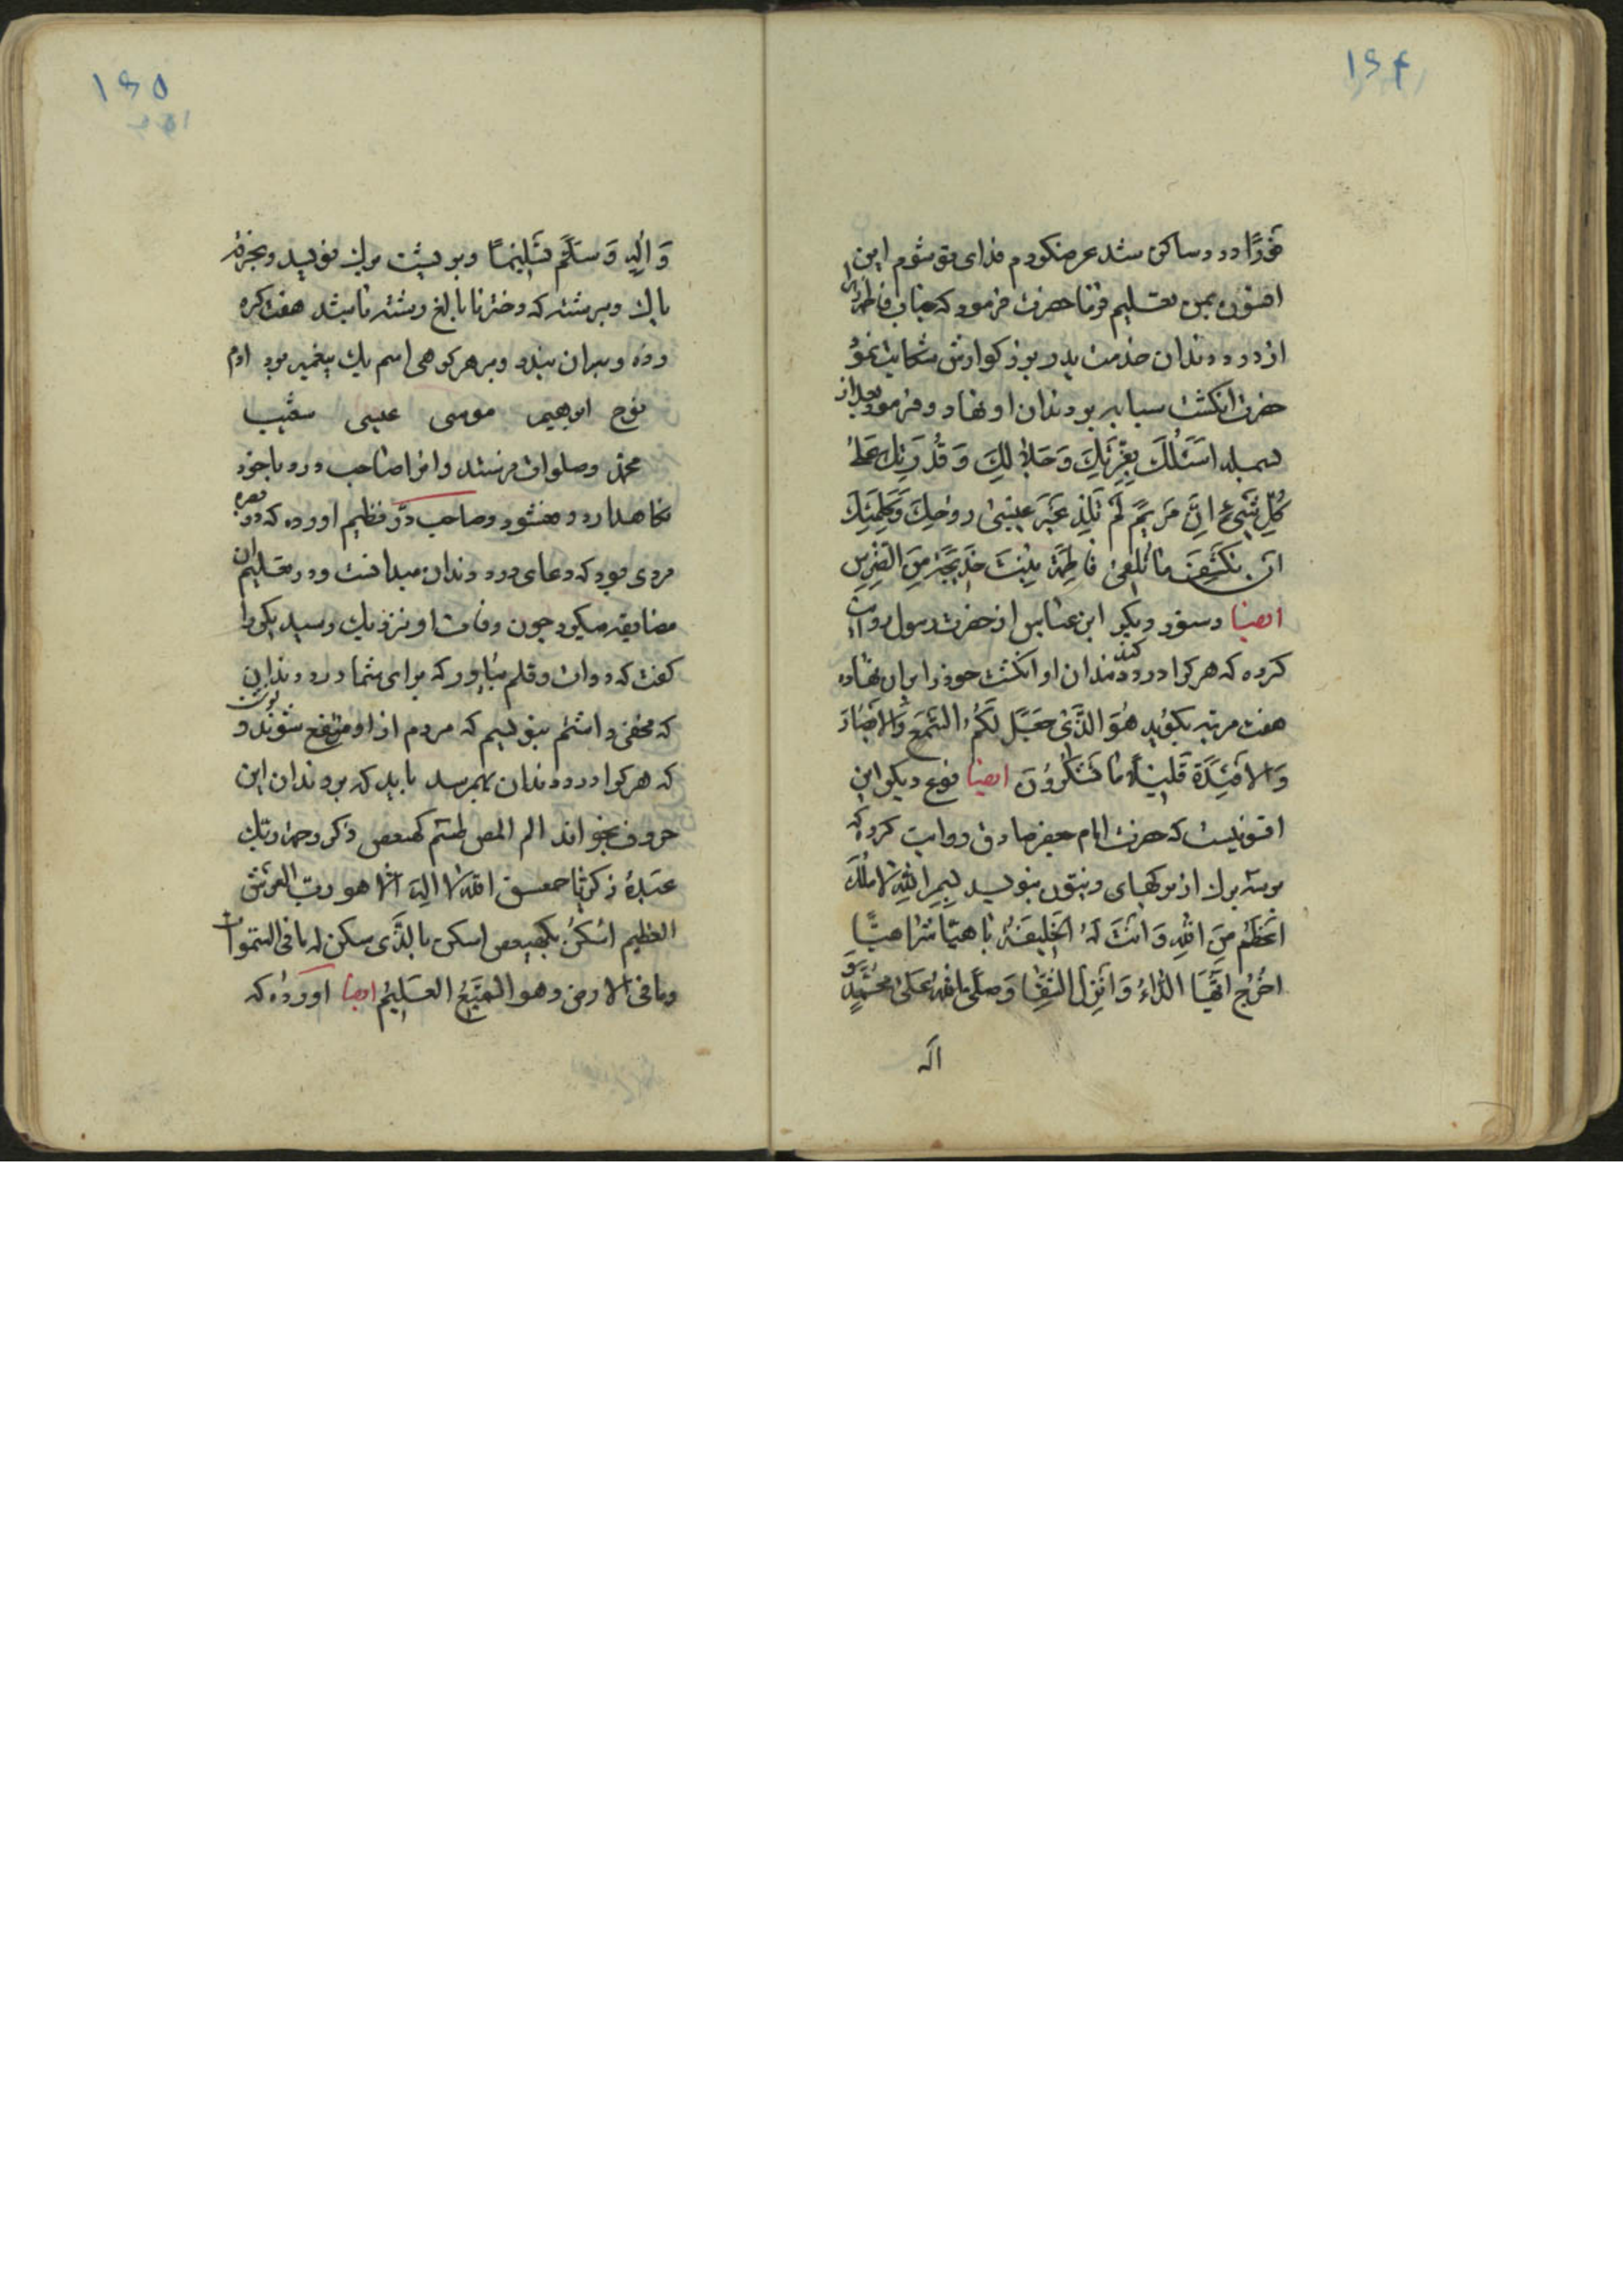 ۱۹۴
فورًا درد ساکن شد عرضکردم فدای تو شوم این
افسون بمن تعلیم فرما حضرت فرمود که جناب فاطمه
از درد دندان خدمت پدر بزرکوارش شکایت نمود
حضرت انکشت سبابه بر دندان او نهاد و فرمود بعد از
بسمله اَسْئَلُكَ بِعِزَّتِكَ وَ جَلالِكَ وَ قُدْرَتِكَ عَلىٰ
كُلِّ شَيْءٍ اِنَّ مَرْيَمَ لَمْ تَلِدْ غَيْرَ عيسٰى رُوحِكَ وَ كَلِمَتِكَ
اَنْ تَكْشِفَ ما تَلْقىٰ فاطِمَةُ بِنْتُ خَديجَةَ مِنَ الضِّرْسِ
ایضا دستور دیکر ابن عباس از حضرت رسول روایت
کرده که هرکرا درد کند دندان او انکشت خود را بران نهاده
هفت مرتبه بکوید هُوَ الَّذى جَعَلَ لَكُمُ السَّمْعَ وَ الاَبْصارَ
وَ الاَفْئِدَةَ قَليلًا ما تَشْكُرُونَ ایضا نوع دیکر این
افسونیست که حضرت امام جعفر صادق روایت کرده که
بر سه برك از برکهای زیتون بنویسد بِسْمِ اللهِ لا مَلِكَ
اَعْظَمُ مِنَ اللهِ وَ اَنْتَ لَهُ الْخَليفَةُ ياهيّا شَراهيّا
اُخْرُجْ اَيُّهَا الدّاءُ وَ اَنْزِلِ الشِّفا وَ صَلَّى اللهُ عَلىٰ مُحَمَّدٍ وَ
اله
۱۹۵
وَ الِهِ وَ سَلَّمَ تَسْليمًا و بر پشت برك نویسد و بخرقهٔ
پاك و برشته که دختر نابالغ رشته باشد هفت کره
زده و بران بندد و بر هر کرهی اسم یك پیغمبر برد ادم
نوح ابرهیم موسی عیسی شعیب
محمد و صلوات فرستد و انرا صاحب درد با خود
نکاهدارد و صاحب درّ نظیم اورده که در بصره
مردی بود که دعای درد دندان میدانست و در تعلیم ان
مضایقه میکرد چون وفات او نزدیك رسید یکی را
کفت که دوات و قلم بیاور که برای شما درد دندان
که مخفی داشتم بنویسم که مردم از او منتفع شوند و
که هرکرا درد دندان بهمرسد باید که بر دندان این
حروف بخواند الم المص طسم کهیعص ذکر رحمة ربك
عبدهٔ زکریا حمعسق الله لا اله الا هو رب العرش
العظیم اُسکن بکهیعص اسکن بالّذی سکن له ما فی السموات
و ما فی الارض و هو السمیع العلیم ایضا اورده که